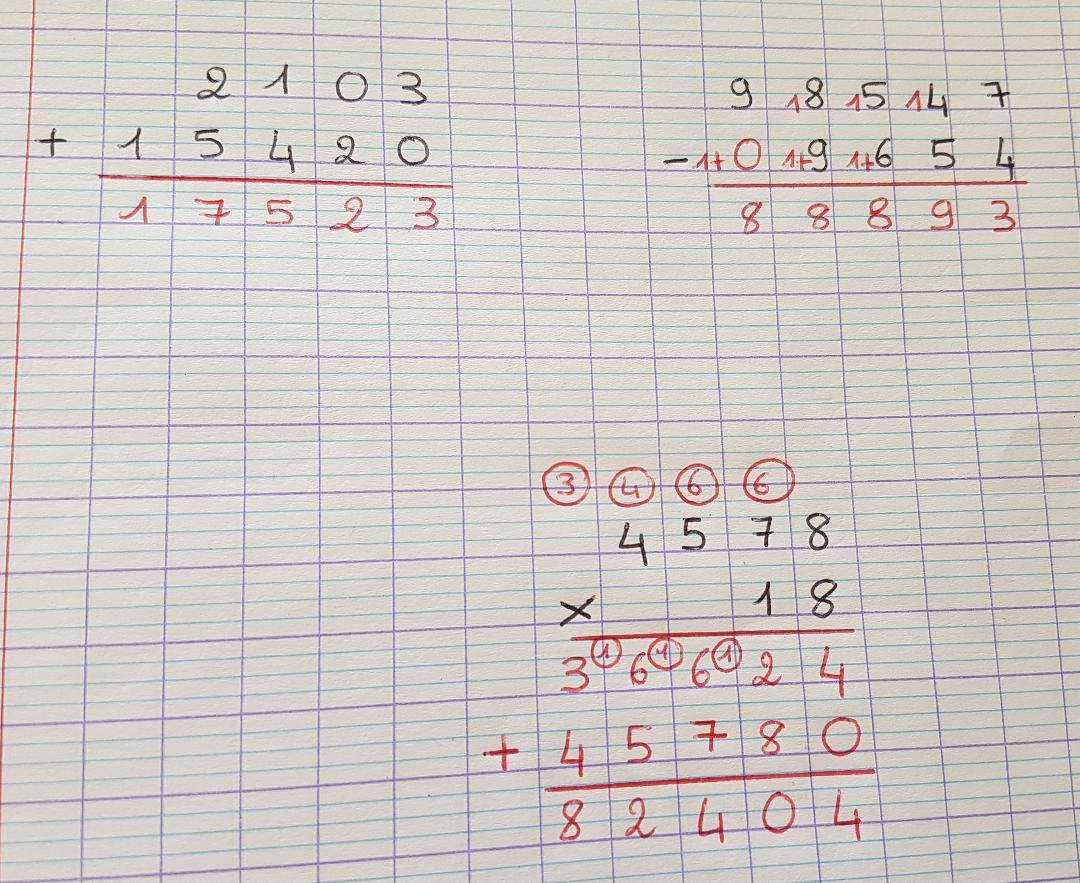 2 1 0 3
+ 1 5 4 2 0
1 7 5 2 3
9 18 15 14 7
- 1+0 1+9 1+6 5 4
8 8 8 9 3
3 4 6 6
4 5 7 8
× 1 8
3 1 6 1 6 1 2 4
+ 4 5 7 8 0
8 2 4 0 4